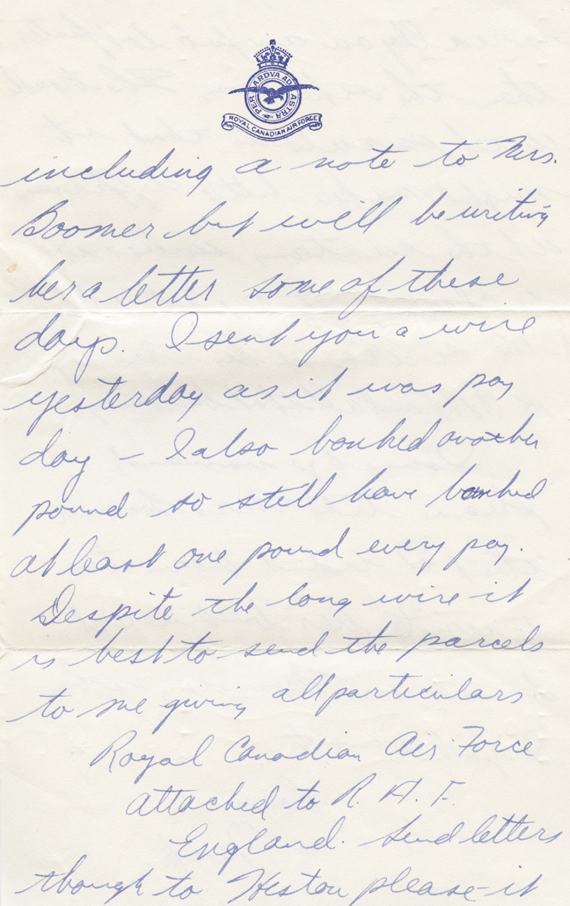 PER ARDVA AD ASTRA
ROYAL CANADIAN AIR FORCE
including a note to Mrs.
Boomer but will be writing
her a letter some of these
days. I sent you a wire
yesterday as it was pay
day – I also banked another
pound so still have banked
at least one pound every pay.
Despite the long wire it
is best to send the parcels
to me giving all particulars
Royal Canadian Air Force
attached to R.A.F.
England. Send letters
though to Heston please - it